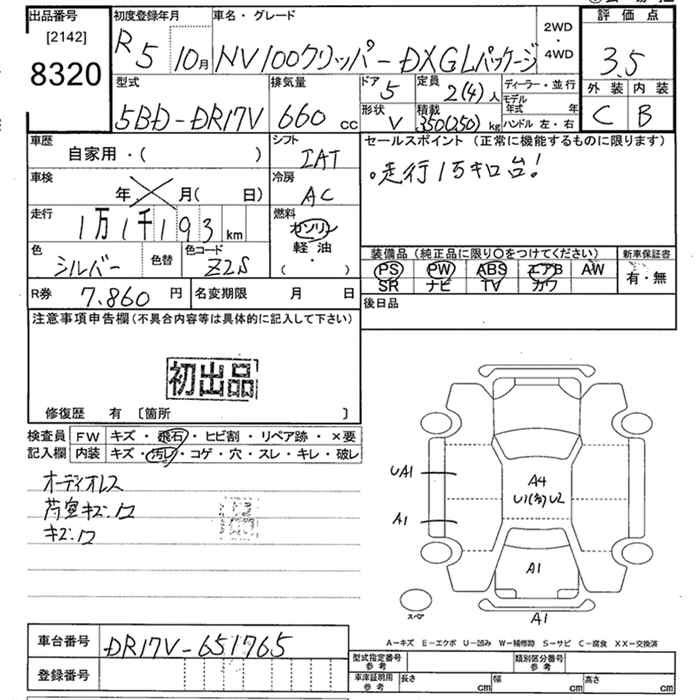 出品番号 初度登録年月 車名・グレード 2WD 評価点
[2142] R5 10月 NV100クリッパー DXGLパッケージ ・ 3.5
8320 4WD 外装 内装
C B
型式 排気量 ドア 定員 ディーラー・並行
5BD-DR17V 660cc 5 2(4)人 モデル年式 年
形状 積載 ハンドル 左・右
V 350(250)kg
車歴 シフト セールスポイント(正常に機能するものに限ります)
自家用・( ) IAT 。走行1万キロ台!
車検 冷房
年 月( 日) AC
走行 燃料
1万1千193km ガソリン
軽油
( ・ )
色 色替 色コード
シルバー Z2S
装備品(純正品に限り○をつけてください) 新車保証書
PS PW ABS エアB AW 有・無
SR ナビ TV カワ
R券 7,860円 名変期限 月 日 後日品
注意事項申告欄(不具合内容等は具体的に記入して下さい)
初出品
修復歴 有 [箇所 ]
検査員 FW キズ・飛石・ヒビ割・リペア跡・×要
記入欄 内装 キズ・汚レ・コゲ・穴・スレ・キレ・破レ
オーディオレス
荷室キズ.ワ
キズ.ワ
UA1
A4
U1(多)U2
A1
A1
スペア
A1
A-キズ E-エクボ U-凹み W-補修跡 S-サビ C-腐食 XX-交換済
車台番号 DR17V-651765
登録番号
型式指定番号 参考 類別区分番号 参考
車庫証明用 参考 長さ cm 幅 cm 高さ cm